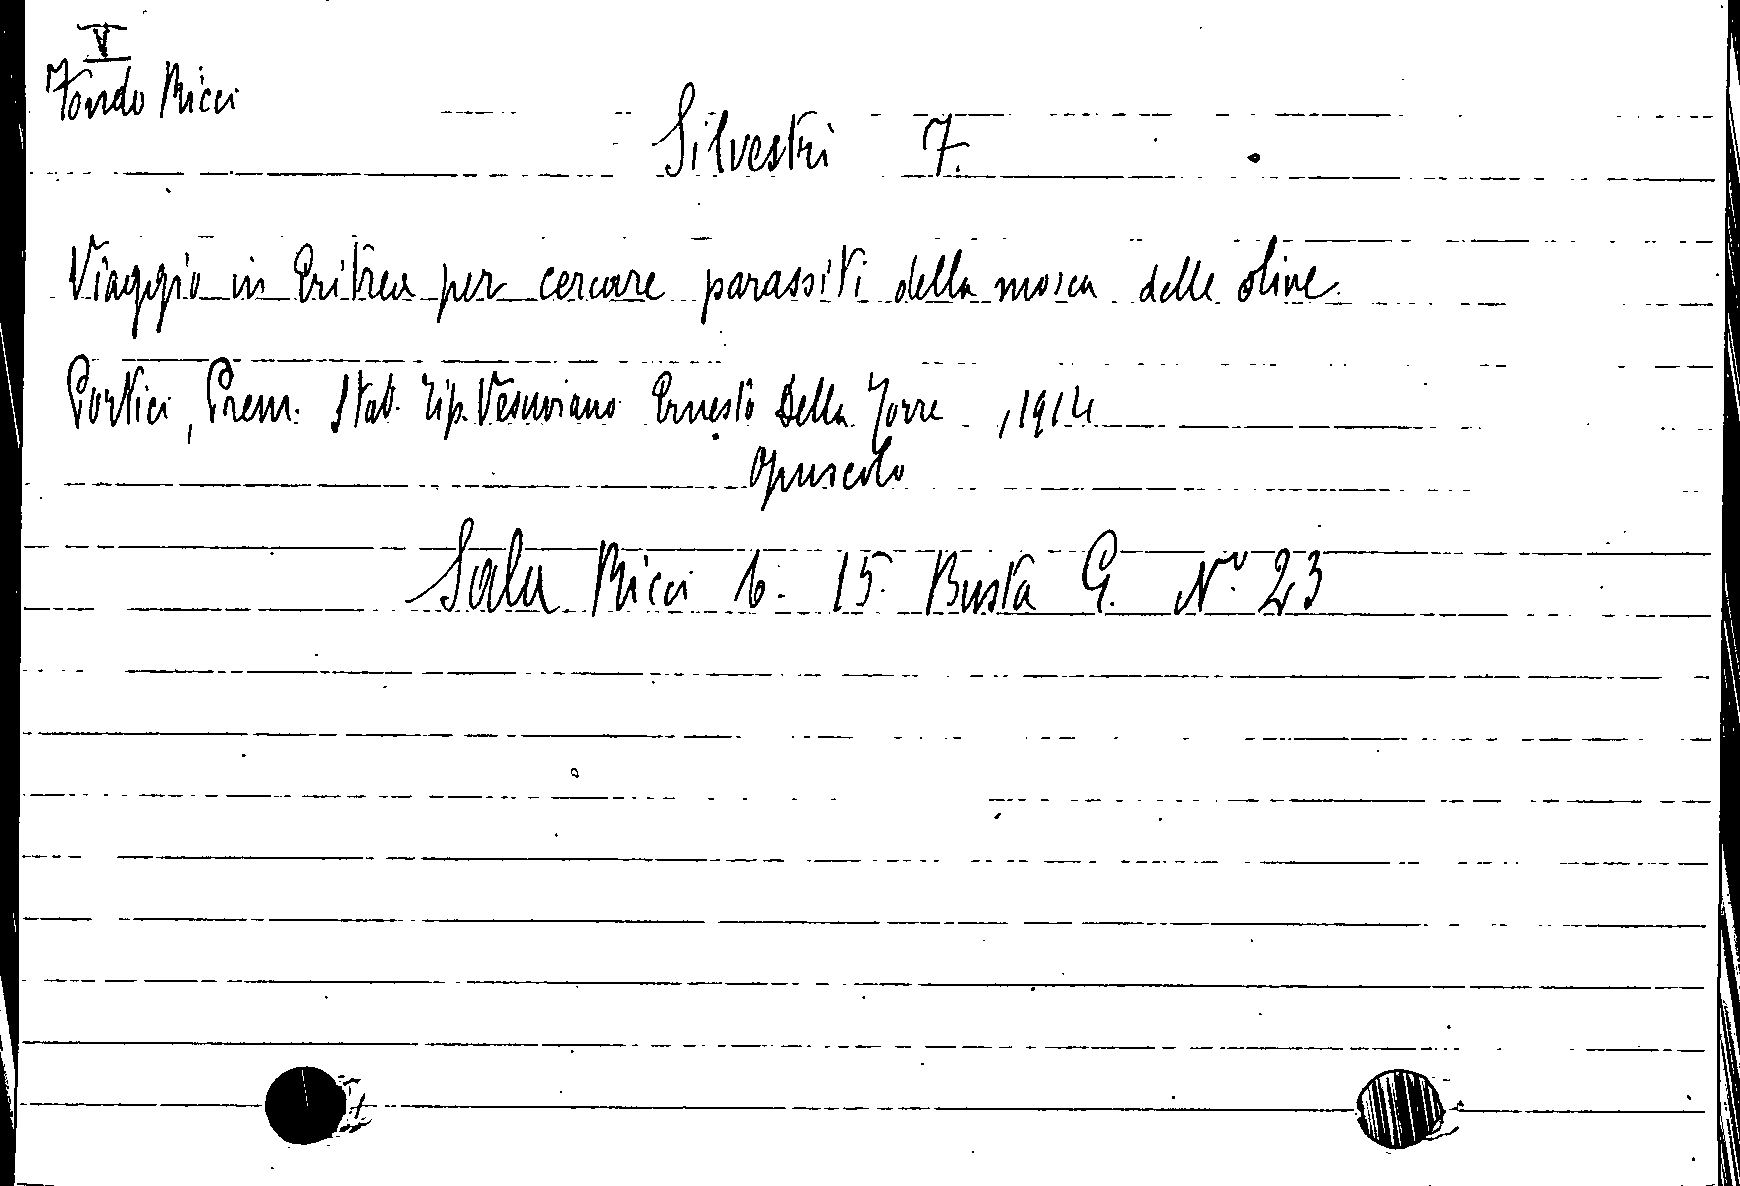 V
Fondo Ricci
Silvestri F.
Viaggio in Eritrea per cercare parassiti della mosca delle olive.
Portici, Prem. Stab. Tip. Vesuviano Ernesto Della Torre, 1914
opuscolo
Sala Ricci b. 15. Busta G. N.º 23